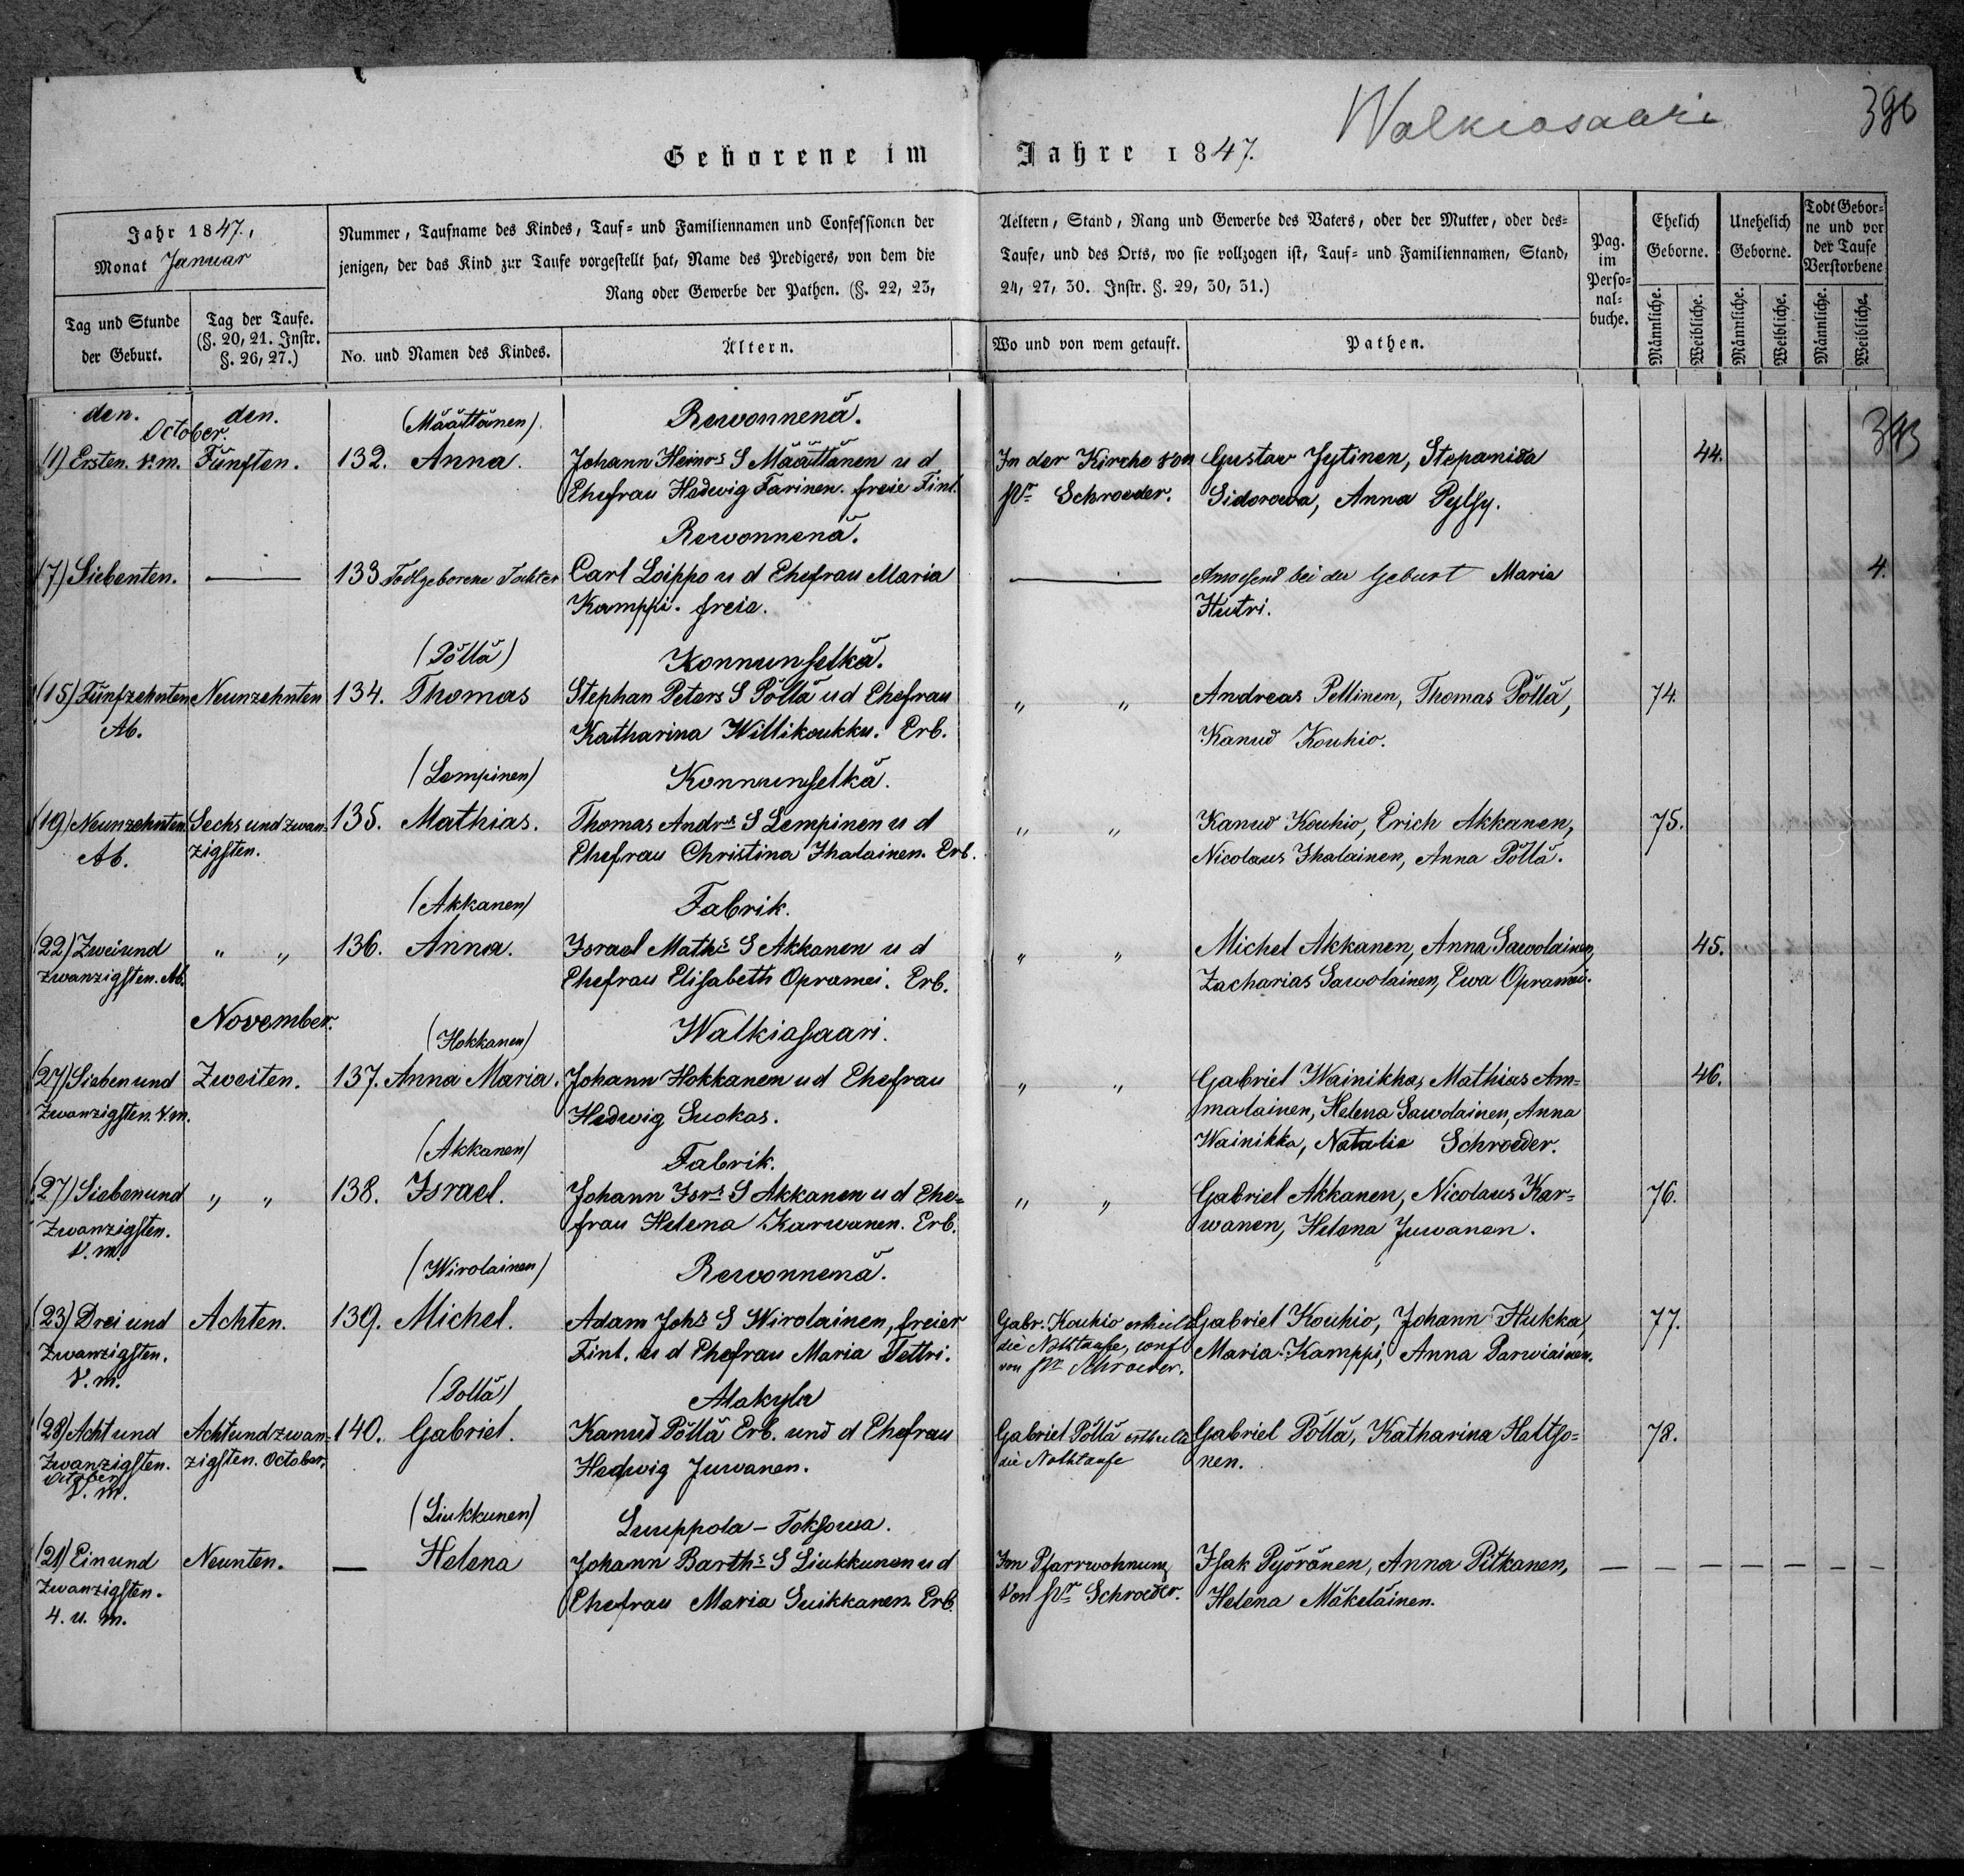 Walkiasaari
396
Geborene im Jahre 1847.
Jahr 1847.,
Monat Januar
Nummer, Taufname des Kindes, Tauf- und Familiennamen und Confessionen der
jenigen, der das Kind zur Taufe vorgestellt hat, Name des Predigers, von dem die
Rang oder Gewerbe der Pathen. (§. 22, 23,
Aeltern, Stand, Rang und Gewerbe des Vaters, oder der Mutter, oder des-
Taufe, und des Orts, wo sie vollzogen ist, Tauf- und Familiennamen, Stand,
24, 27, 30. Instr. §. 29, 30, 31.)
Pag.
im
Perso-
nal-
buche.
Ehelich
Geborne.
Unehelich
Geborne.
Todt Gebor-
ne und vor
der Taufe
Verstorbene
Tag und Stunde
der Geburt.
Tag der Taufe.
(§. 20, 21. Instr.
§. 26, 27.)
No. und Namen des Kindes.
Ältern.
Wo und von wem getauft.
Pathen.
Männliche.
Weibliche.
Männliche.
Weibliche.
Männliche.
Weibliche.
den. den.
October.
(Määttänen).
Rewonnenä.
393
(1) Ersten. V.m. Fünften. 132. Anna.
Johann Heinrs S Määttänen u d
Ehefrau Hedwig Tarinen. freie Finl.
In der Kirche von
Pr Schroeder.
Gustav Jytinen, Stepanida
Sidorowa, Anna Pylsy.
44.
Rewonnenä.
(7) Siebenten. — 133 Todtgeborene Tochter
Carl Loippo u d Ehefrau Maria
Kamppi. freie.
—
Anwesend bei der Geburt Maria
Hutri.
4.
(Pöllä)
Konnunselkä.
(15) Fünfzehnten
Ab.
Neunzehnten 134. Thomas
Stephan Peters S Pöllä u d Ehefrau
Katharina Willikoukku. Erb.
" "
Andreas Pellinen, Thomas Pöllä,
Kanud Kouhio.
74.
(Lempinen)
Konnunselkä.
(19) Neunzehnten
Ab.
Sechs und zwan-
zigsten.
135. Mathias.
Thomas Andrs S Lempinen u d
Ehefrau Christina Ihalainen. Erb.
" "
Kanud Kouhio, Erich Akkanen,
Nicolaus Ihalainen, Anna Pöllä.
75.
(Akkanen)
Fabrik.
(22) Zwei und
Zwanzigsten. Ab.
" "
136. Anna.
Israel Maths S Akkanen u d
Ehefrau Elisabeth Opramei. Erb.
" "
Michel Akkanen, Anna Sawolainen,
Zacharias Sawolainen, Ewa Opramei.
45.
November.
(Hokkanen)
Walkiasaari.
(27) Sieben und
Zwanzigsten. V.m.
Zweiten.
137. Anna Maria.
Johann Hokkanen u d Ehefrau
Hedwig Suokas.
" "
Gabriel Wainikka, Mathias Am-
malainen, Helena Sawolainen, Anna
Wainikka, Natalie Schroeder.
46.
(Akkanen)
Fabrik.
(27) Sieben und
Zwanzigsten.
V.m.
" "
138. Israel.
Johann Isrs S Akkanen u d Ehe-
frau Helena Karwanen. Erb.
" "
Gabriel Akkanen, Nicolaus Kar-
wanen, Helena Juwanen.
76.
(Wirolainen)
Rewonnenä.
(23) Drei und
Zwanzigsten.
V.m.
Achten.
139. Michel.
Adam Johs S Wirolainen, freier
Finl. u d Ehefrau Maria Tettri.
Gabr. Kouhio ertheilte
die Nothtaufe, conf
von Pr Schroeder.
Gabriel Kouhio, Johann Hukka,
Maria Kamppi, Anna Parwiainen.
77.
(Pöllä)
Alakyla
(28) Acht und
Zwanzigsten.
October
V.m.
Acht und zwan-
zigsten. October.
140. Gabriel.
Kanud Pöllä Erb. und d Ehefrau
Hedwig Juwanen.
Gabriel Pöllä ertheilte
die Nothtaufe
Gabriel Pöllä, Katharina Haltso-
nen.
78.
(Liukkunen)
Luuppola – Toksowa.
(21) Ein und
Zwanzigsten.
4. u. m.
Neunten.
— Helena
Johann Barths S Liukkunen u d
Ehefrau Maria Suikkanen. Erb.
Im Pfarrwohnung
von Pr Schroeder.
Isak Pyöränen, Anna Pitkanen,
Helena Mäkeläinen.
— — — — — — —